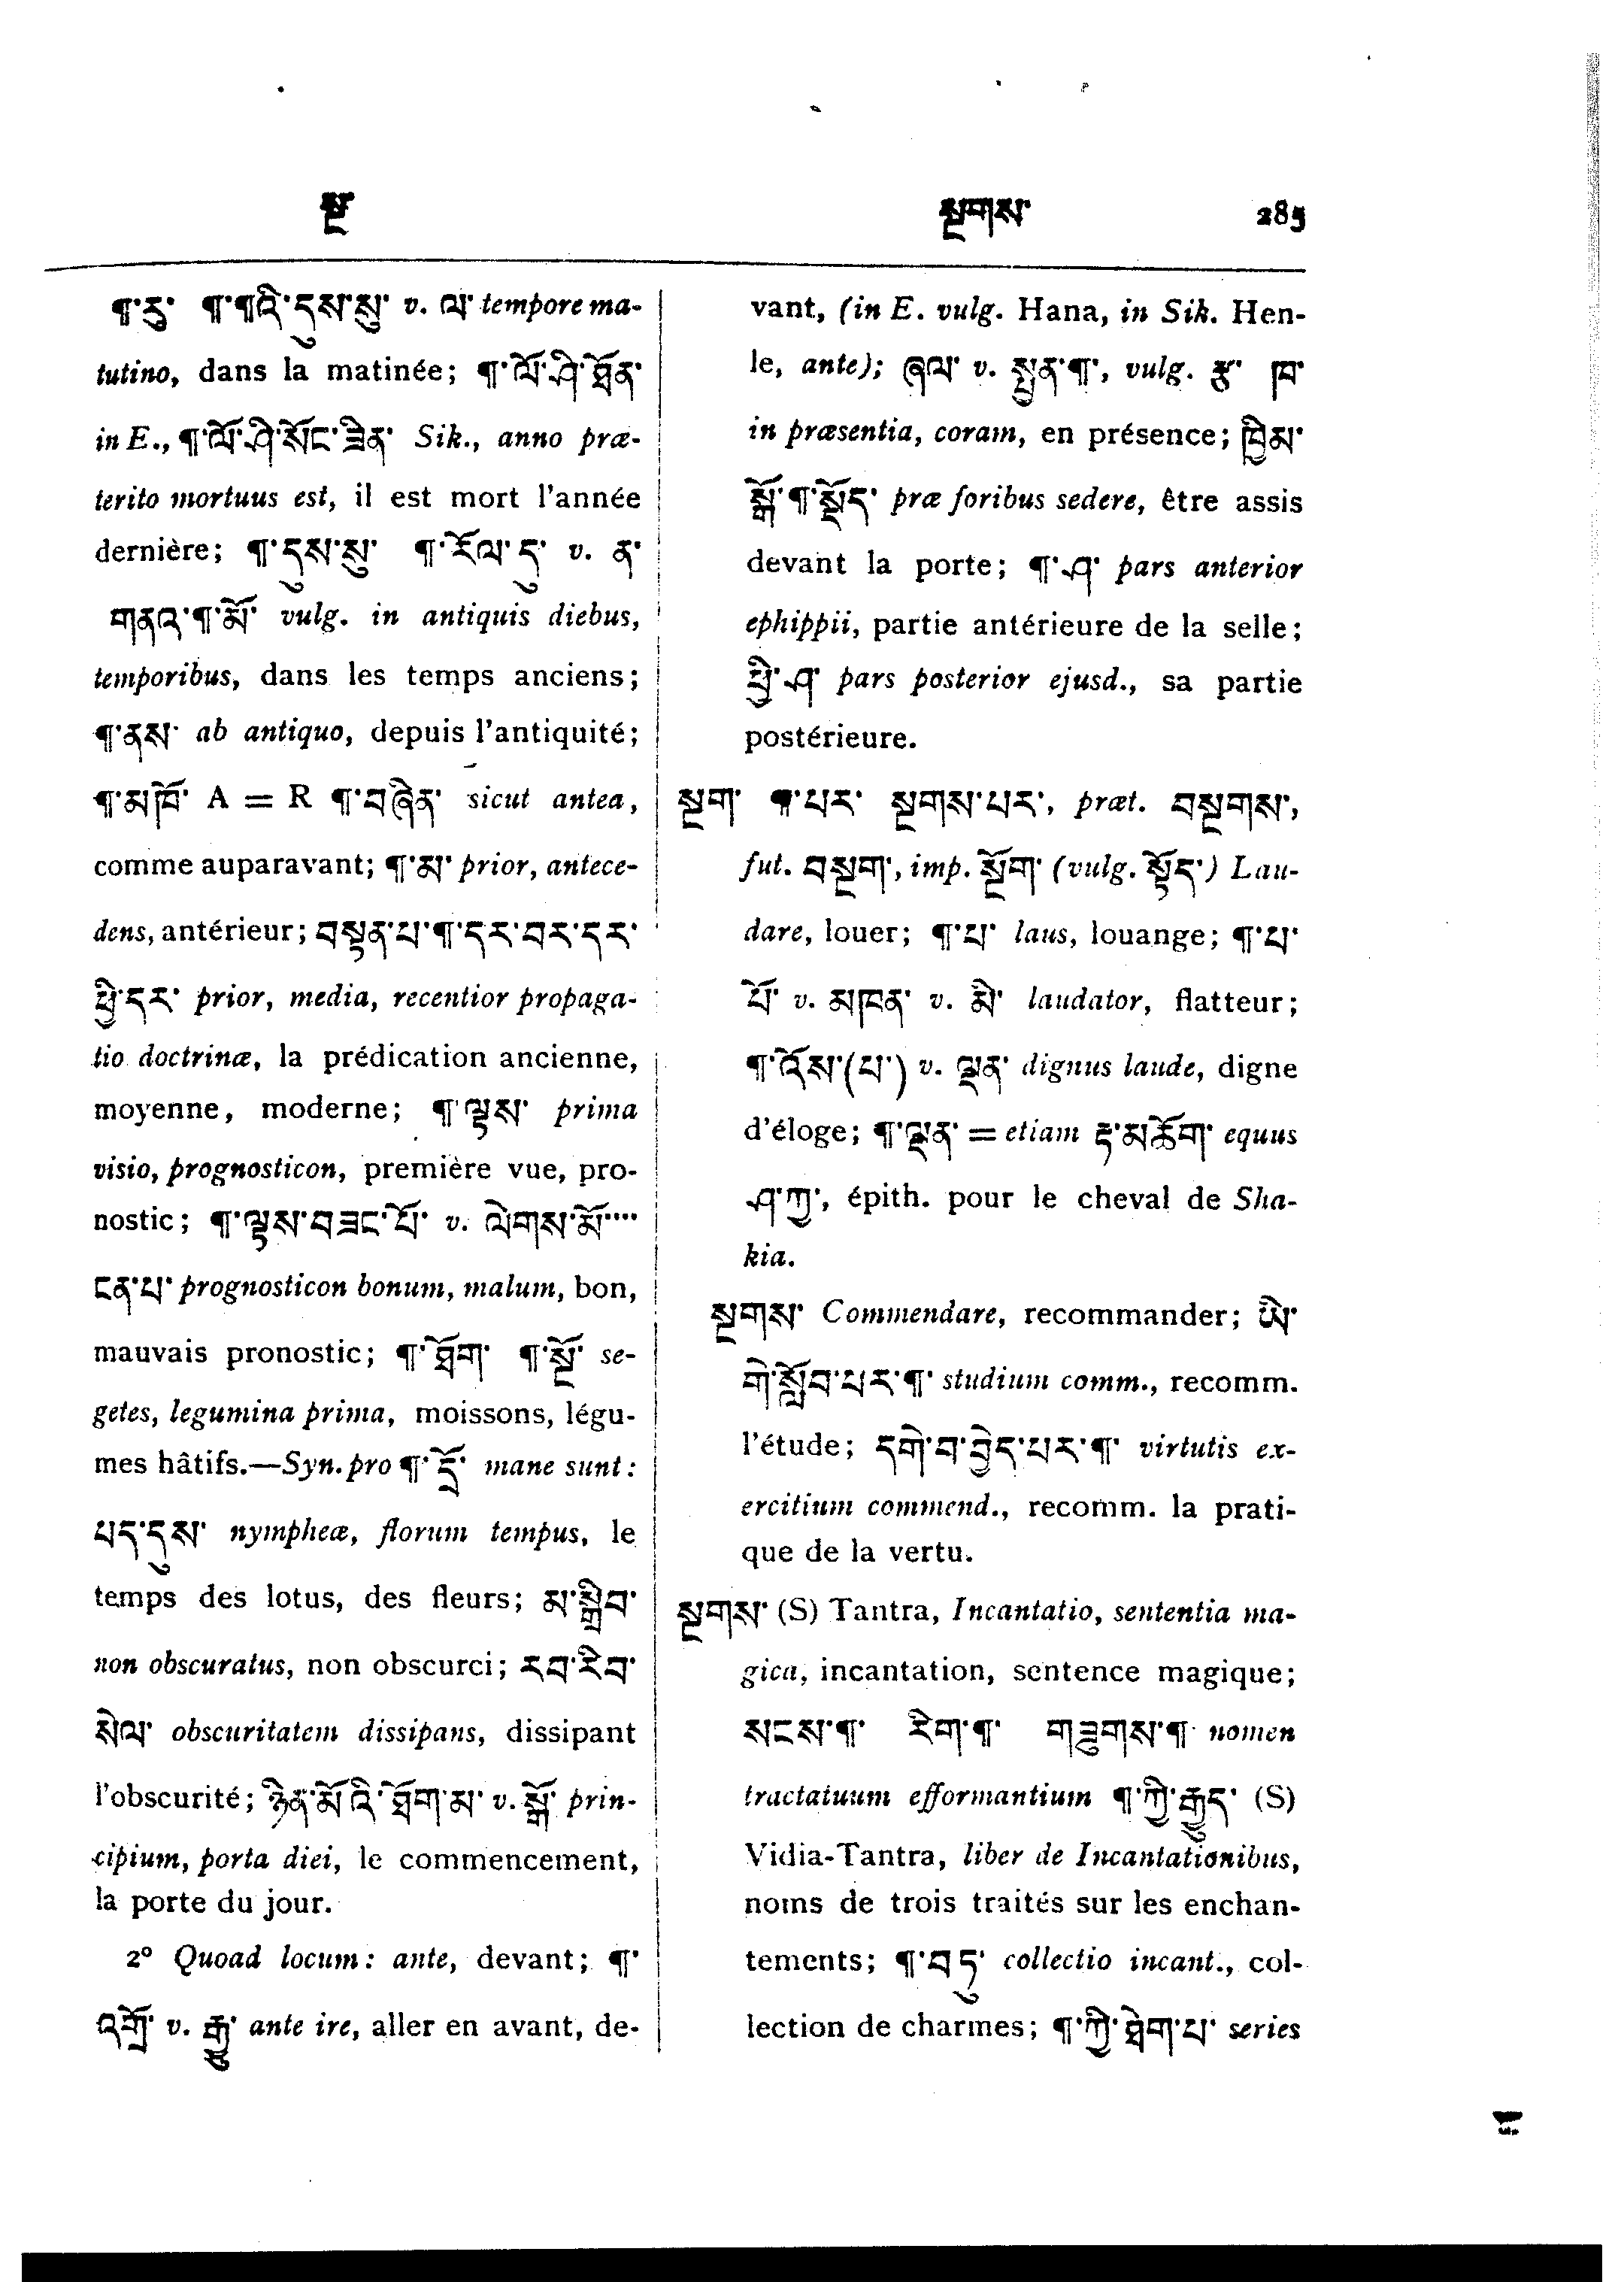 སྔ
སྔགས་ 285
¶་རུ་ ¶་¶འི་དུས་སུ་ v. ལ་ tempore ma-
tutino, dans la matinée; ¶་ལོ་ཤི་ཐོན་
in E., ¶་ལོ་ཤི་སོང་ཟིན་ Sik., anno præ-
terito mortuus est, il est mort l'année
dernière; ¶་དུས་སུ་ ¶་རོལ་དུ་ v. ན་
གནའ་¶་མོ་ vulg. in antiquis diebus,
temporibus, dans les temps anciens;
¶་ནས་ ab antiquo, depuis l'antiquité;
¶་མཁོ་ A = R ¶་བཞིན་ sicut antea,
comme auparavant; ¶་མ་ prior, antece-
dens, antérieur; བསྟན་པ་¶་དར་བར་དར་
ཕྱི་དར་ prior, media, recentior propaga-
tio doctrinæ, la prédication ancienne,
moyenne, moderne; ¶་ལྟས་ prima
visio, prognosticon, première vue, pro-
nostic; ¶་ལྟས་བཟང་པོ་ v. ལེགས་མོ་····
ངན་པ་ prognosticon bonum, malum, bon,
mauvais pronostic; ¶་ཐོག་ ¶་སྔོ་ se-
getes, legumina prima, moissons, légu-
mes hâtifs.—Syn. pro ¶་དྲོ་ mane sunt:
པད་དུས་ nympheæ, florum tempus, le
temps des lotus, des fleurs; མ་སྒྲིབ་
non obscuratus, non obscurci; རབ་རིབ་
སེལ་ obscuritatem dissipans, dissipant
l'obscurité; ཉིན་མོའི་ཐོག་མ་ v. སྒོ་ prin-
cipium, porta diei, le commencement,
la porte du jour.
2° Quoad locum: ante, devant; ¶་
འགྲོ་ v. རྒྱུ་ ante ire, aller en avant, de-
vant, (in E. vulg. Hana, in Sik. Hen-
le, ante); ཞལ་ v. སྤྱན་¶་, vulg. རྩ་ ཁ་
in præsentia, coram, en présence; ཁྱིམ་
སྒོ་¶་སྡོད་ præ foribus sedere, être assis
devant la porte; ¶་ཤ་ pars anterior
ephippii, partie antérieure de la selle;
ཕྱི་ཤ་ pars posterior ejusd., sa partie
postérieure.
སྔག་ ¶་པར་ སྔགས་པར་, præt. བསྔགས་,
fut. བསྔག་, imp. སྔོག་ (vulg. སྟོད་) Lau-
dare, louer; ¶་པ་ laus, louange; ¶་པ་
པོ་ v. མཁན་ v. མི་ laudator, flatteur;
¶་འོས་(པ་) v. ལྡན་ dignus laude, digne
d'éloge; ¶་ལྡན་ = etiam རྟ་མཆོག་ equus
ཤ་ཀྱ་, épith. pour le cheval de Sha-
kia.
སྔགས་ Commendare, recommander; ཡི་
གེ་སློབ་པར་¶་ studium comm., recomm.
l'étude; དགེ་བ་བྱེད་པར་¶་ virtutis ex-
ercitium commend., recomm. la prati-
que de la vertu.
སྔགས་ (S) Tantra, Incantatio, sententia ma-
gica, incantation, sentence magique;
སངས་¶་ རིག་¶་ གཟུགས་¶་ nomen
tractatuum efformantium ¶་ཀྱི་རྒྱུད་ (S)
Vidia-Tantra, liber de Incantationibus,
noms de trois traités sur les enchan-
tements; ¶་བཏུ་ collectio incant., col-
lection de charmes; ¶་ཀྱི་ཐེག་པ་ series